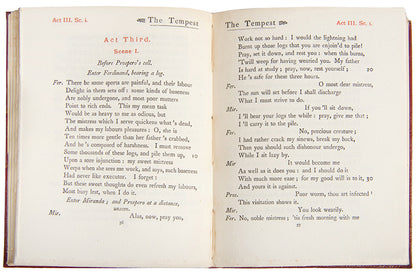 Act III. Sc. i.
The Tempest
Act Third.
Scene I.
Before Prospero's cell.
Enter Ferdinand, bearing a log.
Fer. There be some sports are painful, and their labour
Delight in them sets off: some kinds of baseness
Are nobly undergone, and most poor matters
Point to rich ends. This my mean task
Would be as heavy to me as odious, but
The mistress which I serve quickens what's dead,
And makes my labours pleasures: O, she is
Ten times more gentle than her father's crabbed,
And he's composed of harshness. I must remove
Some thousands of these logs, and pile them up, 10
Upon a sore injunction: my sweet mistress
Weeps when she sees me work, and says, such baseness
Had never like executor. I forget:
But these sweet thoughts do even refresh my labours,
Most busy lest, when I do it.
Enter Miranda; and Prospero at a distance,
unseen.
Mir. Alas, now, pray you,
56
The Tempest
Act III. Sc. i.
Work not so hard: I would the lightning had
Burnt up those logs that you are enjoin'd to pile!
Pray, set it down, and rest you: when this burns,
'Twill weep for having wearied you. My father
Is hard at study; pray, now, rest yourself; 20
He's safe for these three hours.
Fer. O most dear mistress,
The sun will set before I shall discharge
What I must strive to do.
Mir. If you'll sit down,
I'll bear your logs the while: pray, give me that;
I'll carry it to the pile.
Fer. No, precious creature;
I had rather crack my sinews, break my back,
Than you should such dishonour undergo,
While I sit lazy by.
Mir. It would become me
As well as it does you: and I should do it
With much more ease; for my good will is to it, 30
And yours it is against.
Pros. Poor worm, thou art infected!
This visitation shews it.
Mir. You look wearily.
Fer. No, noble mistress; 'tis fresh morning with me
57